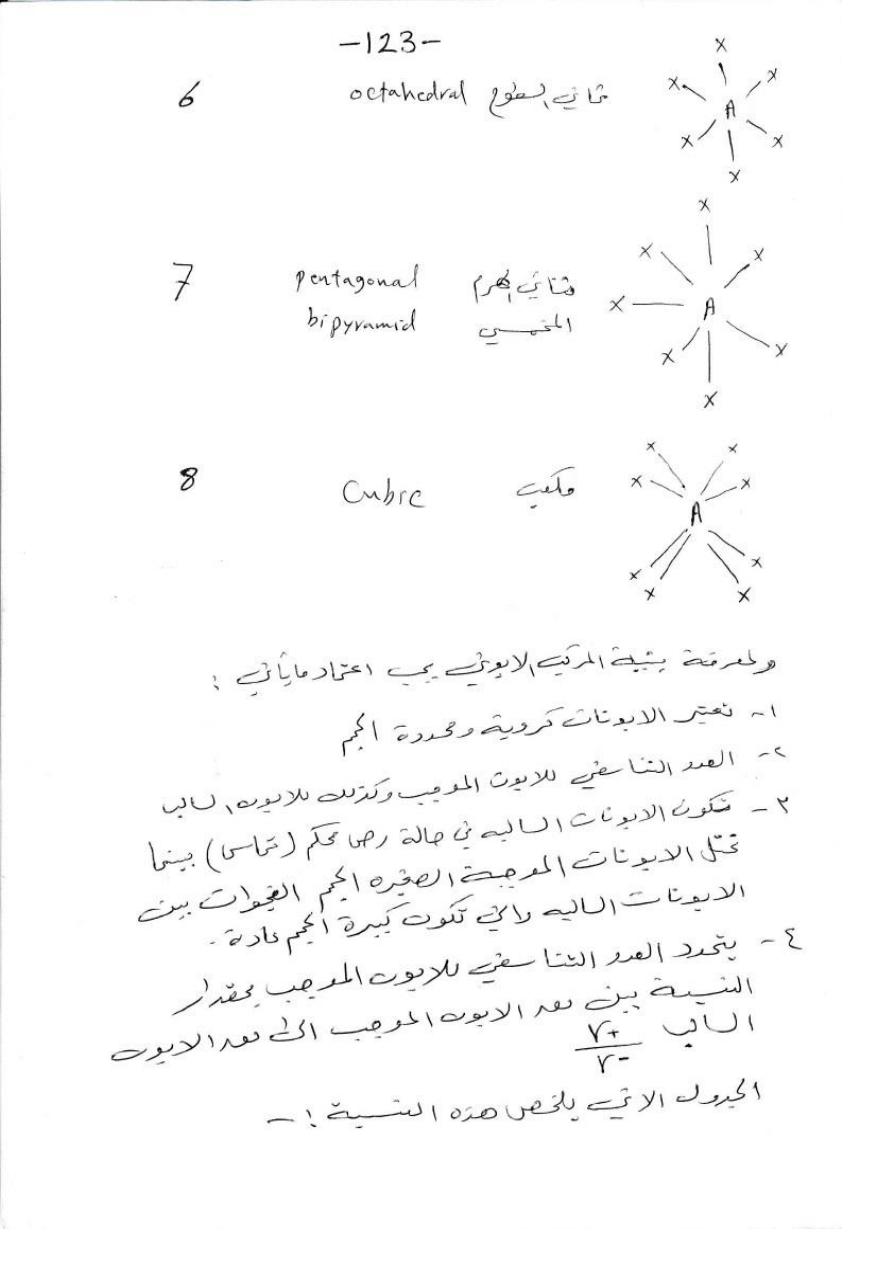 -123-
6 octahedral ثماني السطوح
X X X A X X X
7 pentagonal ثنائي الهرم
bipyramid المخمسي
X X X X A X X X
8 Cubic مكعب
X X X X A X X X X
ولمعرفة بنية المركب الايوني يجب اعتماد مايأتي :
١- تعتبر الايونات كروية ومحددة الحجم
٢- العدد التناسقي للايون الموجب وكذلك للايون السالب
٣- تكون الايونات السالبه في حالة رص محكم (تماس) بينما
تحتل الايونات الموجبة الصغيره الحجم الفجوات بين
الايونات السالبه والتي تكون كبيرة الحجم عادة .
٤- يتحدد العدد التناسقي للايون الموجب بمقدار
النسبة بين بعد الايون الموجب الى بعد الايون
السالب r+/r-
الجدول الاتي يلخص هذه النسبة :-